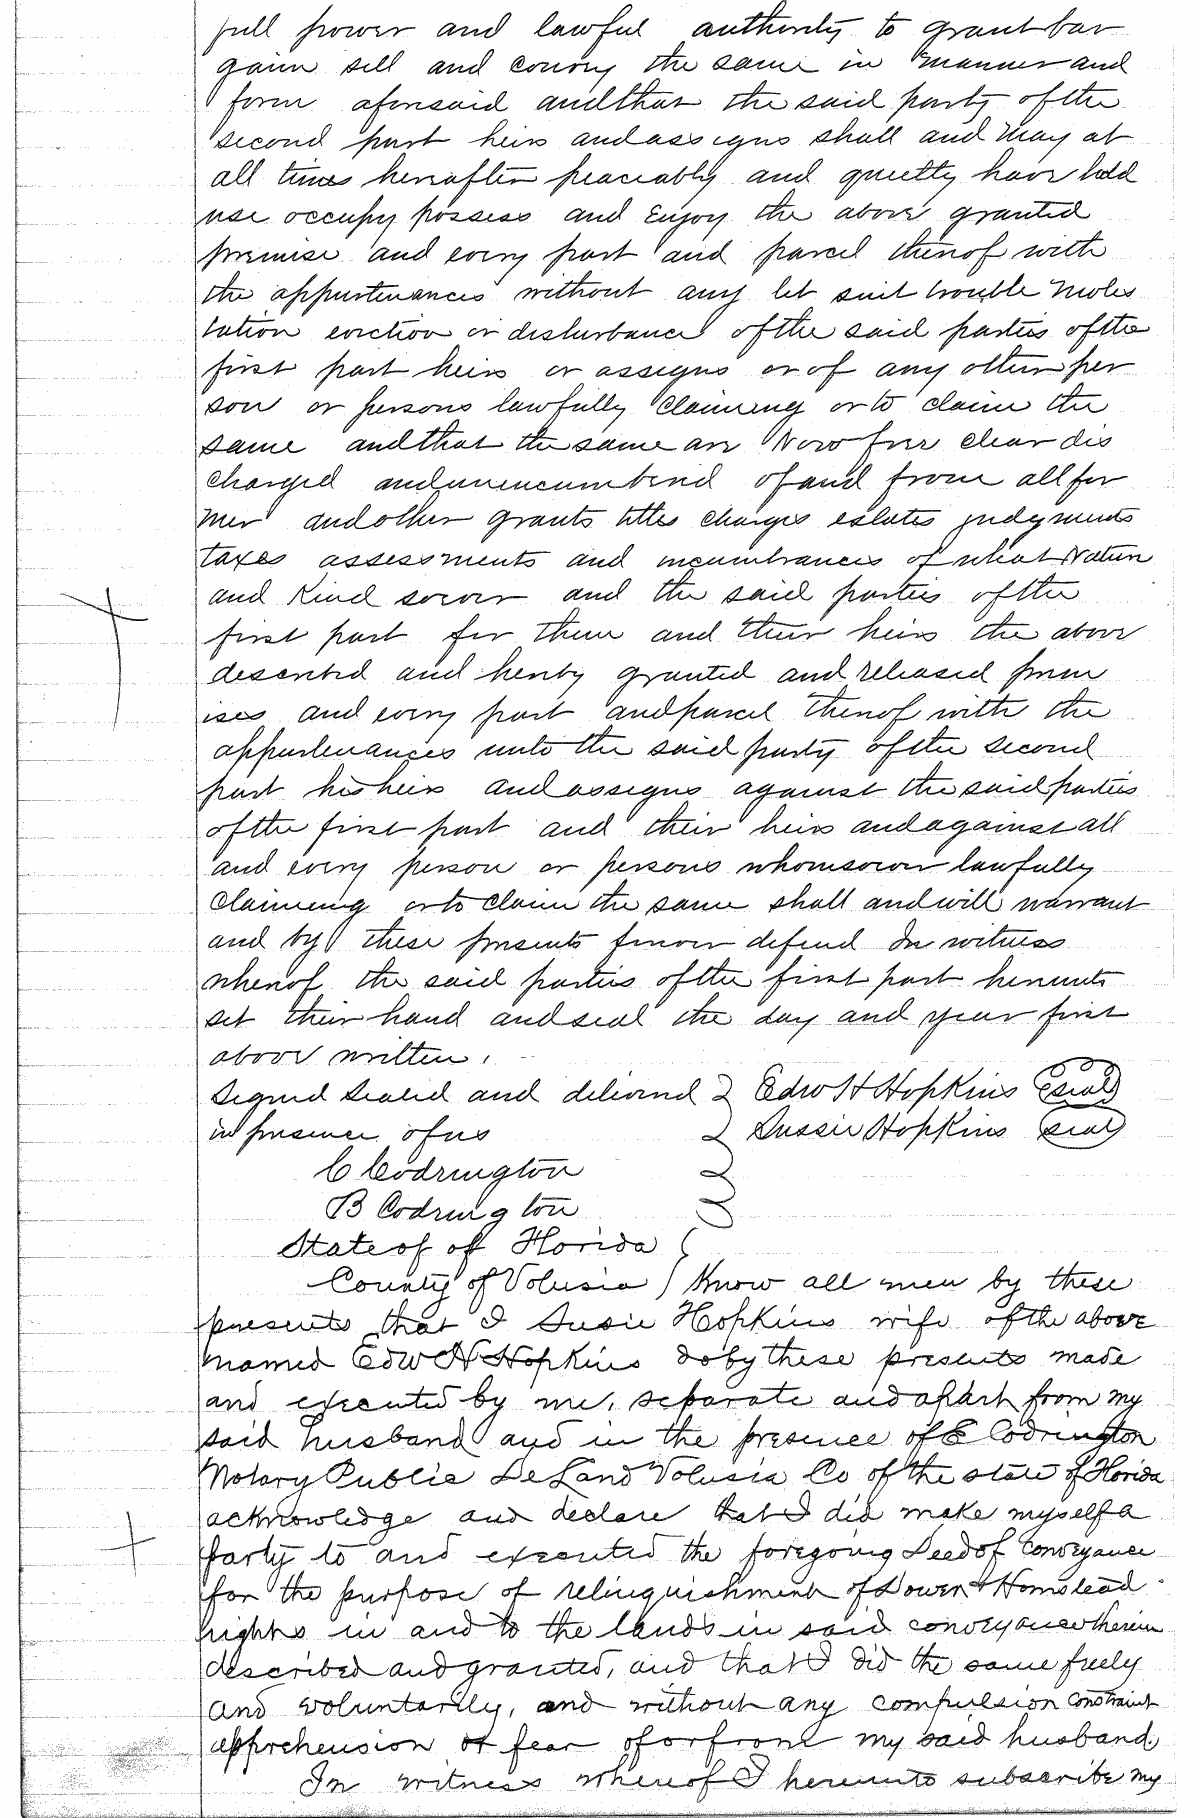 full power and lawful authority to grant bar
gain sell and convey the same in manner and
form aforesaid and that the said party of the
second part heirs and assigns shall and may at
all times hereafter peaceably and quietly have hold
use occupy possess and Enjoy the above granted
premise and every part and parcel thereof with
the appurtenances without any let suit trouble moles
tation eviction or disturbance of the said parties of the
first part heirs or assigns or of any other per
son or persons lawfully claiming or to claim the
same and that the same are Now free clear dis
charged and unencumbered of and from all for
mer and other grants titles charges estates judgments
taxes assessments and incumbrances of what Nature
and Kind soever and the said parties of the
first part for them and their heirs the above
described and hereby granted and released prem
ises and every part and parcel thereof with the
appurtenances unto the said party of the second
part his heirs and assigns against the said parties
of the first part and their heirs and against all
and every person or persons whomsoever lawfully
claiming or to claim the same shall and will warrant
and by these presents forever defend In witness
whereof the said parties of the first part hereunto
set their hand and seal the day and year first
above written.
Signed Sealed and delivered Edw H Hopkins (seal)
in presence of us Sussie Hopkins (seal)
C Codrington
B Codrington
State of of Florida
County of Volusia Know all men by these
presents that I Susie Hopkins wife of the above
named Edw H Hopkins do by these presents made
and executed by me, separate and apart from my
said husband and in the presence of E Codrington
Notary Public DeLand Volusia Co of the state of Florida
acknowledge and declare that I did make myself a
party to and executed the foregoing Deed of Conveyance
for the purpose of relinquishment of Dower & Homstead
rights in and to the lands in said conveyance therein
described and granted, and that I did the same freely
and voluntarily, and without any compulsion constraint
apprehension or fear of or from my said husband.
In witness whereof I hereunto subscribe my